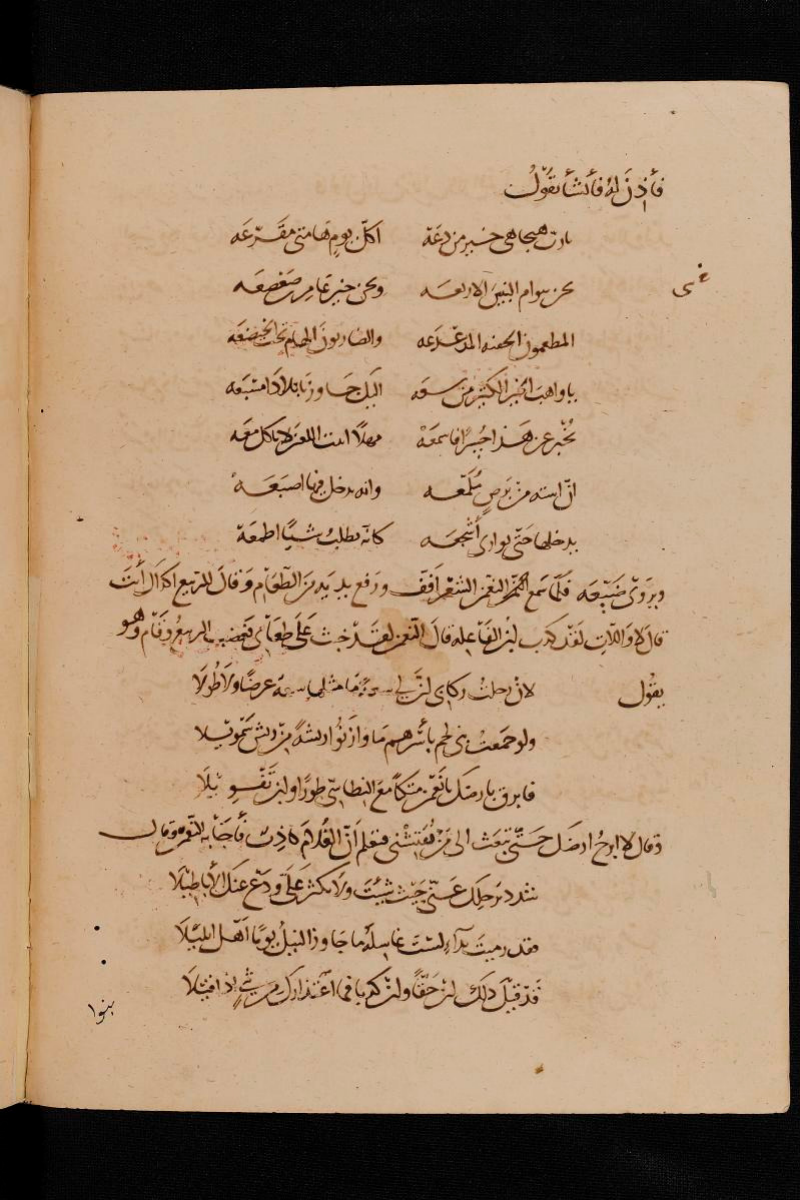 فأذن له فأنشأ يقول
يا رب هيجا هي خير من دعه اكل يوم هامتي مقزعه
نحن بنوا ام البنين الاربعه ونحن خير عامر بن صعصعه
المطعمون الجفنه المدعدعه والضاربون الهام تحت الخيضعه
يا واهب الخير الكثير من سعه اليك جاوزنا بلادا مسبعه
يخبر عن هذا خبير فاسمعه مهلا ابيت اللعن لا تاكل معه
ان استه من برص ملمعه وانه يدخل فيها اصبعه
يدخلها حتى يواري اشجعه كانه يطلب شيا اطمعه
ويروى ضيعه فلما سمع النعمن الشعر افف ورفع يده من الطعام وقال للربيع اكذاك أنت
قال لا واللات لقد كذب ابن الفاعله قال النعمن لقد خبث علي طعامي فغضب الربيع وقام وهو
يقول لان رحلت ركابي ان لي سعة ما مثلها سعة عرضا ولا طولا
ولو جمعت بني لخم بأسرهم ما وازنوا ريشة من ريش سمويلا
فابرق بارضك يا نعمن متكأ مع النطاسي طورا وابن توفيلا
وقال لا ابرح ارضك حتى تبعث الى من يفتشني فتعلم أن الغلام كاذب فأجابه النعمن وقال
شرد برحلك عني حيث شئت ولا تكثر علي ودع عنك الأباطيلا
فقد رميت بداء لست غاسله ما جاوز النيل يوما اهل ابليلا
قد قيل ذلك ان حقا وان كذبا فما اعتذارك من شيء اذا قيلا
بنوا